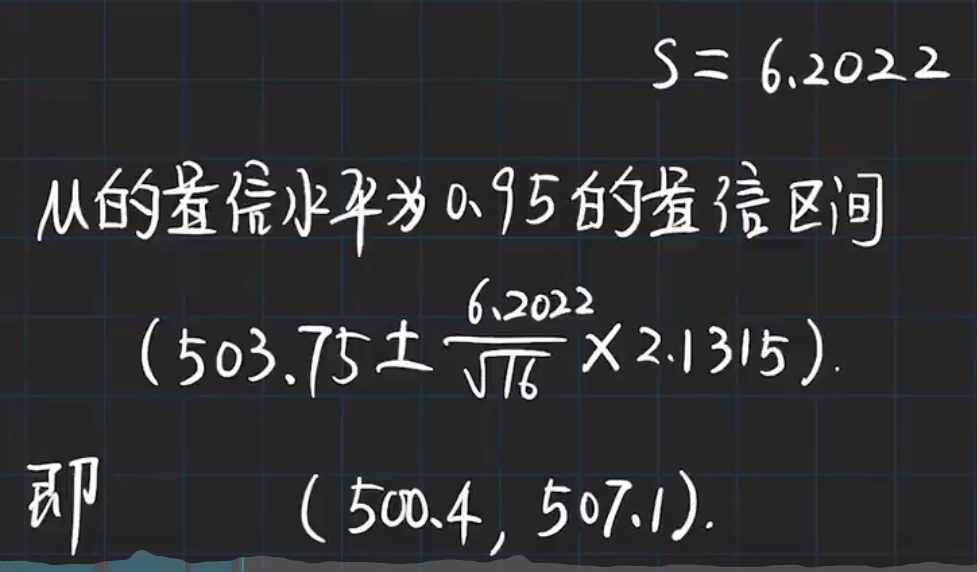 S = 6.2022
μ的置信水平为0.95的置信区间
(503.75 ± \frac{6.2022}{\sqrt{16}} × 2.1315).
即 (500.4, 507.1).